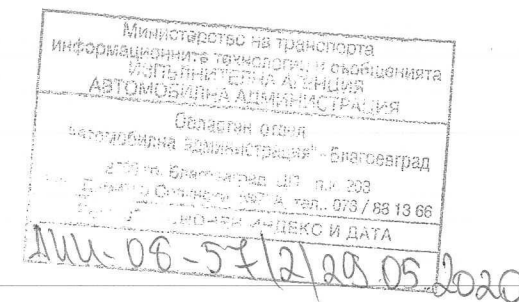 Министерство на транспорта
информационните технологии и съобщенията
ИЗПЪЛНИТЕЛНА АГЕНЦИЯ
АВТОМОБИЛНА АДМИНИСТРАЦИЯ
Областен отдел
автомобилна администрация" - Благоевград
Благоевград п.к. 203
тел.: 073 / 88 13 66
ИНДЕКС И ДАТА
08-57/2/29.05.2020